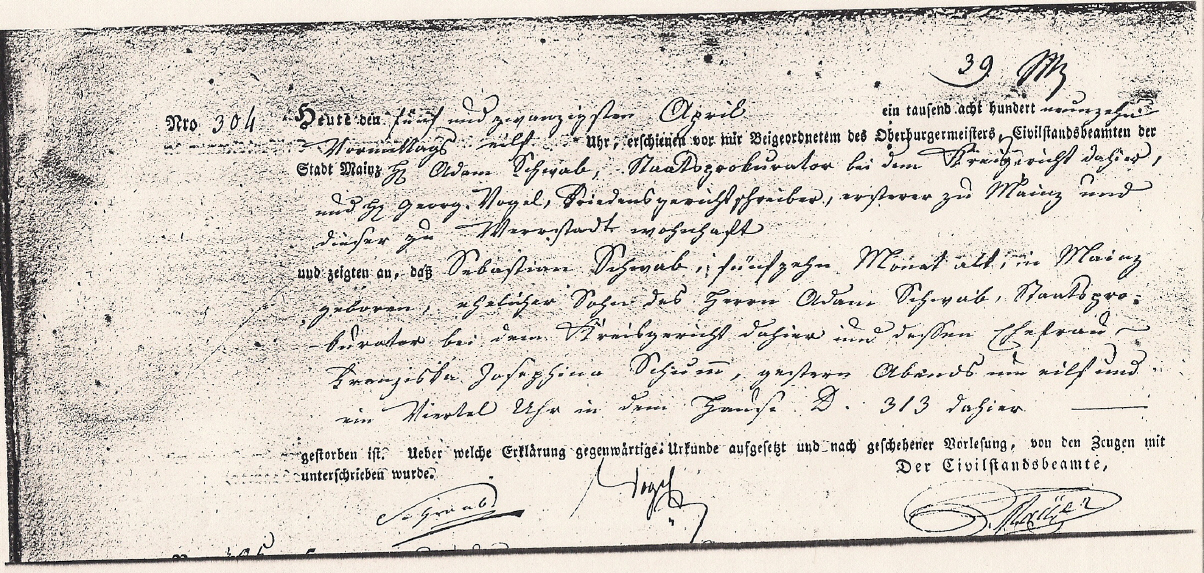 39
Nro 304 Heute den fünf und zwanzigsten April ein tausend acht hundert neunzehn
Vormittags eilf Uhr, erschienen vor mir Beigeordnetem des Oberburgermeisters, Civilstandsbeamten der
Stadt Mainz H Adam Schwab, Staatsprokurator bei dem Kreisgericht dahier,
und H Georg Vogel, Friedensgerichtschreiber, ersterer zu Mainz und
dieser zu Werrstadt wohnhaft
und zeigten an, daß Sebastian Schwab, fünfzehn Monat alt, in Mainz
geboren, ehelicher Sohn des Herrn Adam Schwab, Staatspro-
kurator bei dem Kreisgericht dahier und dessen Ehefrau
Franziska Josephina Schumm, gestern Abends um eilf und
ein Viertel Uhr in dem Hause D. 313 dahier
gestorben ist. Ueber welche Erklärung gegenwärtige Urkunde aufgesetzt und nach geschehener Vorlesung, von den Zeugen mit
unterschrieben wurde. Der Civilstandsbeamte,
Schwab Vogel